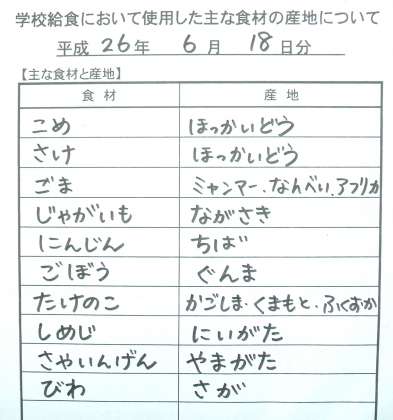 学校給食において使用した主な食材の産地について
平成 26年 6月 18日分
【主な食材と産地】
食材 産地
こめ ほっかいどう
さけ ほっかいどう
ごま ミャンマー、なんべい、アフリカ
じゃがいも ながさき
にんじん ちば
ごぼう ぐんま
たけのこ かごしま・くまもと・ふくおか
しめじ にいがた
さやいんげん やまがた
びわ さが